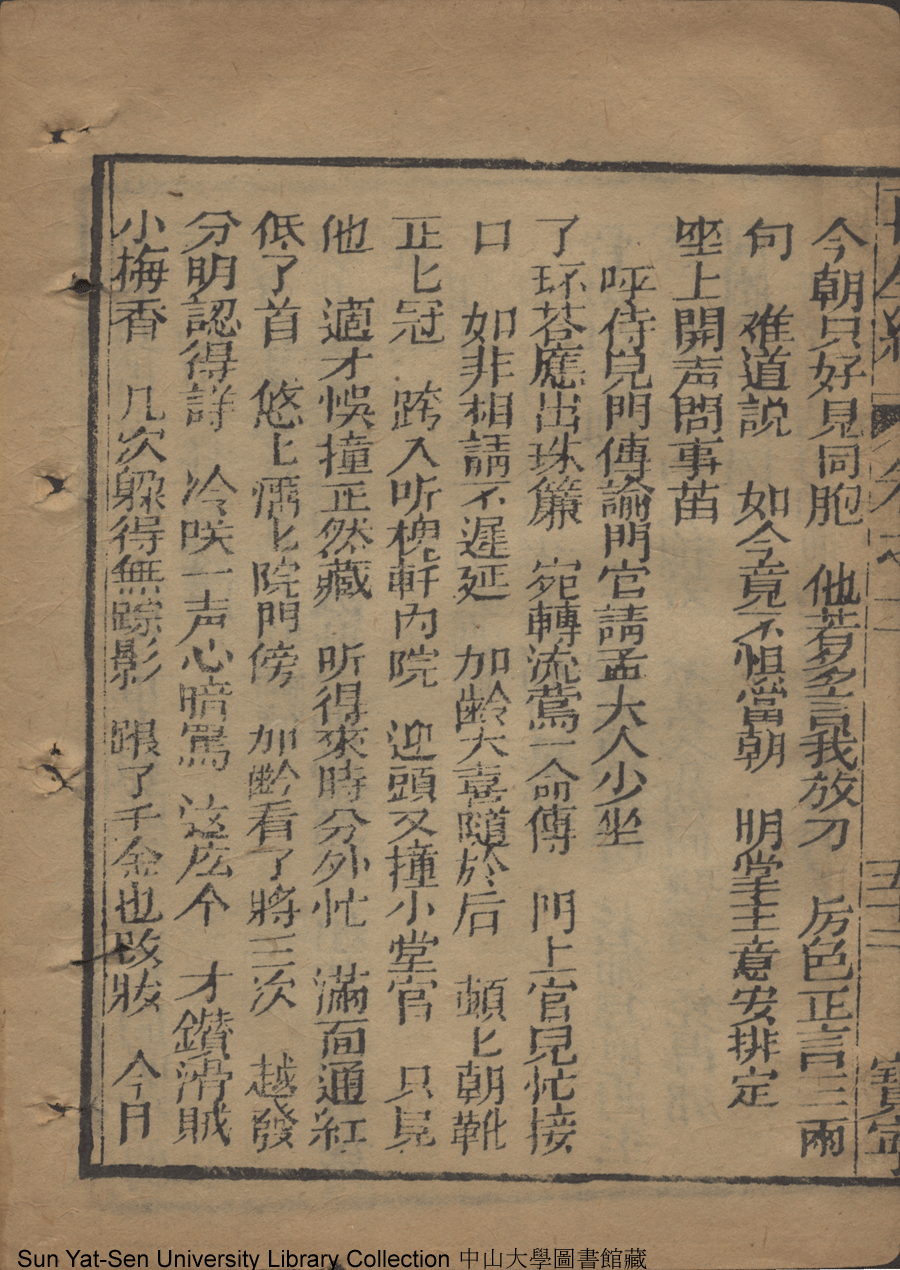 今朝只好見同胞　他若多言我放刁　厉色正言三兩
句　难道説　如今竟不怕當朝　明堂主意安排定
坐上開声問事苗
呼侍兒門傳諭門官請孟大人少坐
了环荅應出珠簾　宛轉流莺一命傳　門上官兒忙接
口　如非相請不遲延　加齡大喜隨於后　頓匕朝靴
正匕冠　跨入听槐軒内院　迎頭又撞小堂官　只見
他　適才悮撞正然藏　听得來時分外忙　滿面通紅
低了首　悠上　匕院門傍　加齡看了將三次　越發
分明認得詳　冷咲一声心暗罵　这庅个　才鑚滑賊
小梅香　几次躱得無踪影　跟了千金也改粧　今日
五十三
寶寧
Sun Yat-Sen University Library Collection 中山大學圖書館藏